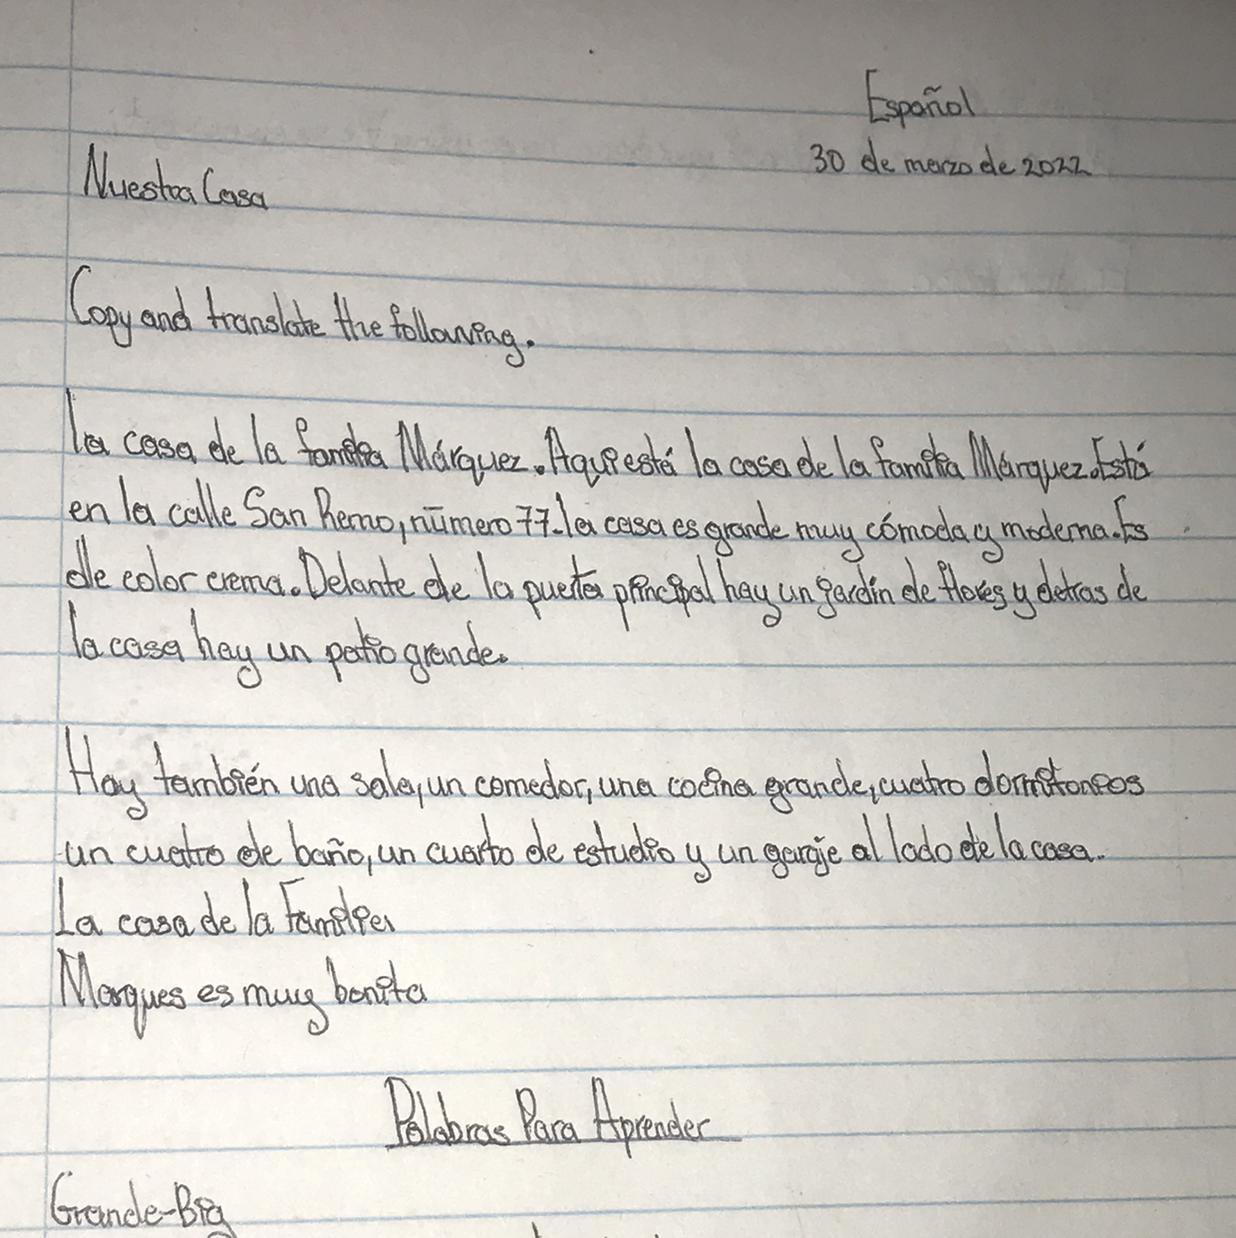 Español
30 de marzo de 2022
Nuestra Casa
Copy and translate the following.
la casa de la familia Márquez. Aqui está la casa de la familia Márquez. Está
en la calle San Remo, número 77. la casa es grande muy cómoda y moderna. Es
de color crema. Delante de la puerta principal hay un jardin de flores y detras de
la casa hay un patio grande.
Hay también una sala, un comedor, una cocina grande, cuatro dormitorios
un cuatro de baño, un cuarto de estudio y un garaje al lado de la casa.
La casa de la Familia
Marques es muy bonita
Palabras Para Aprender
Grande-Big